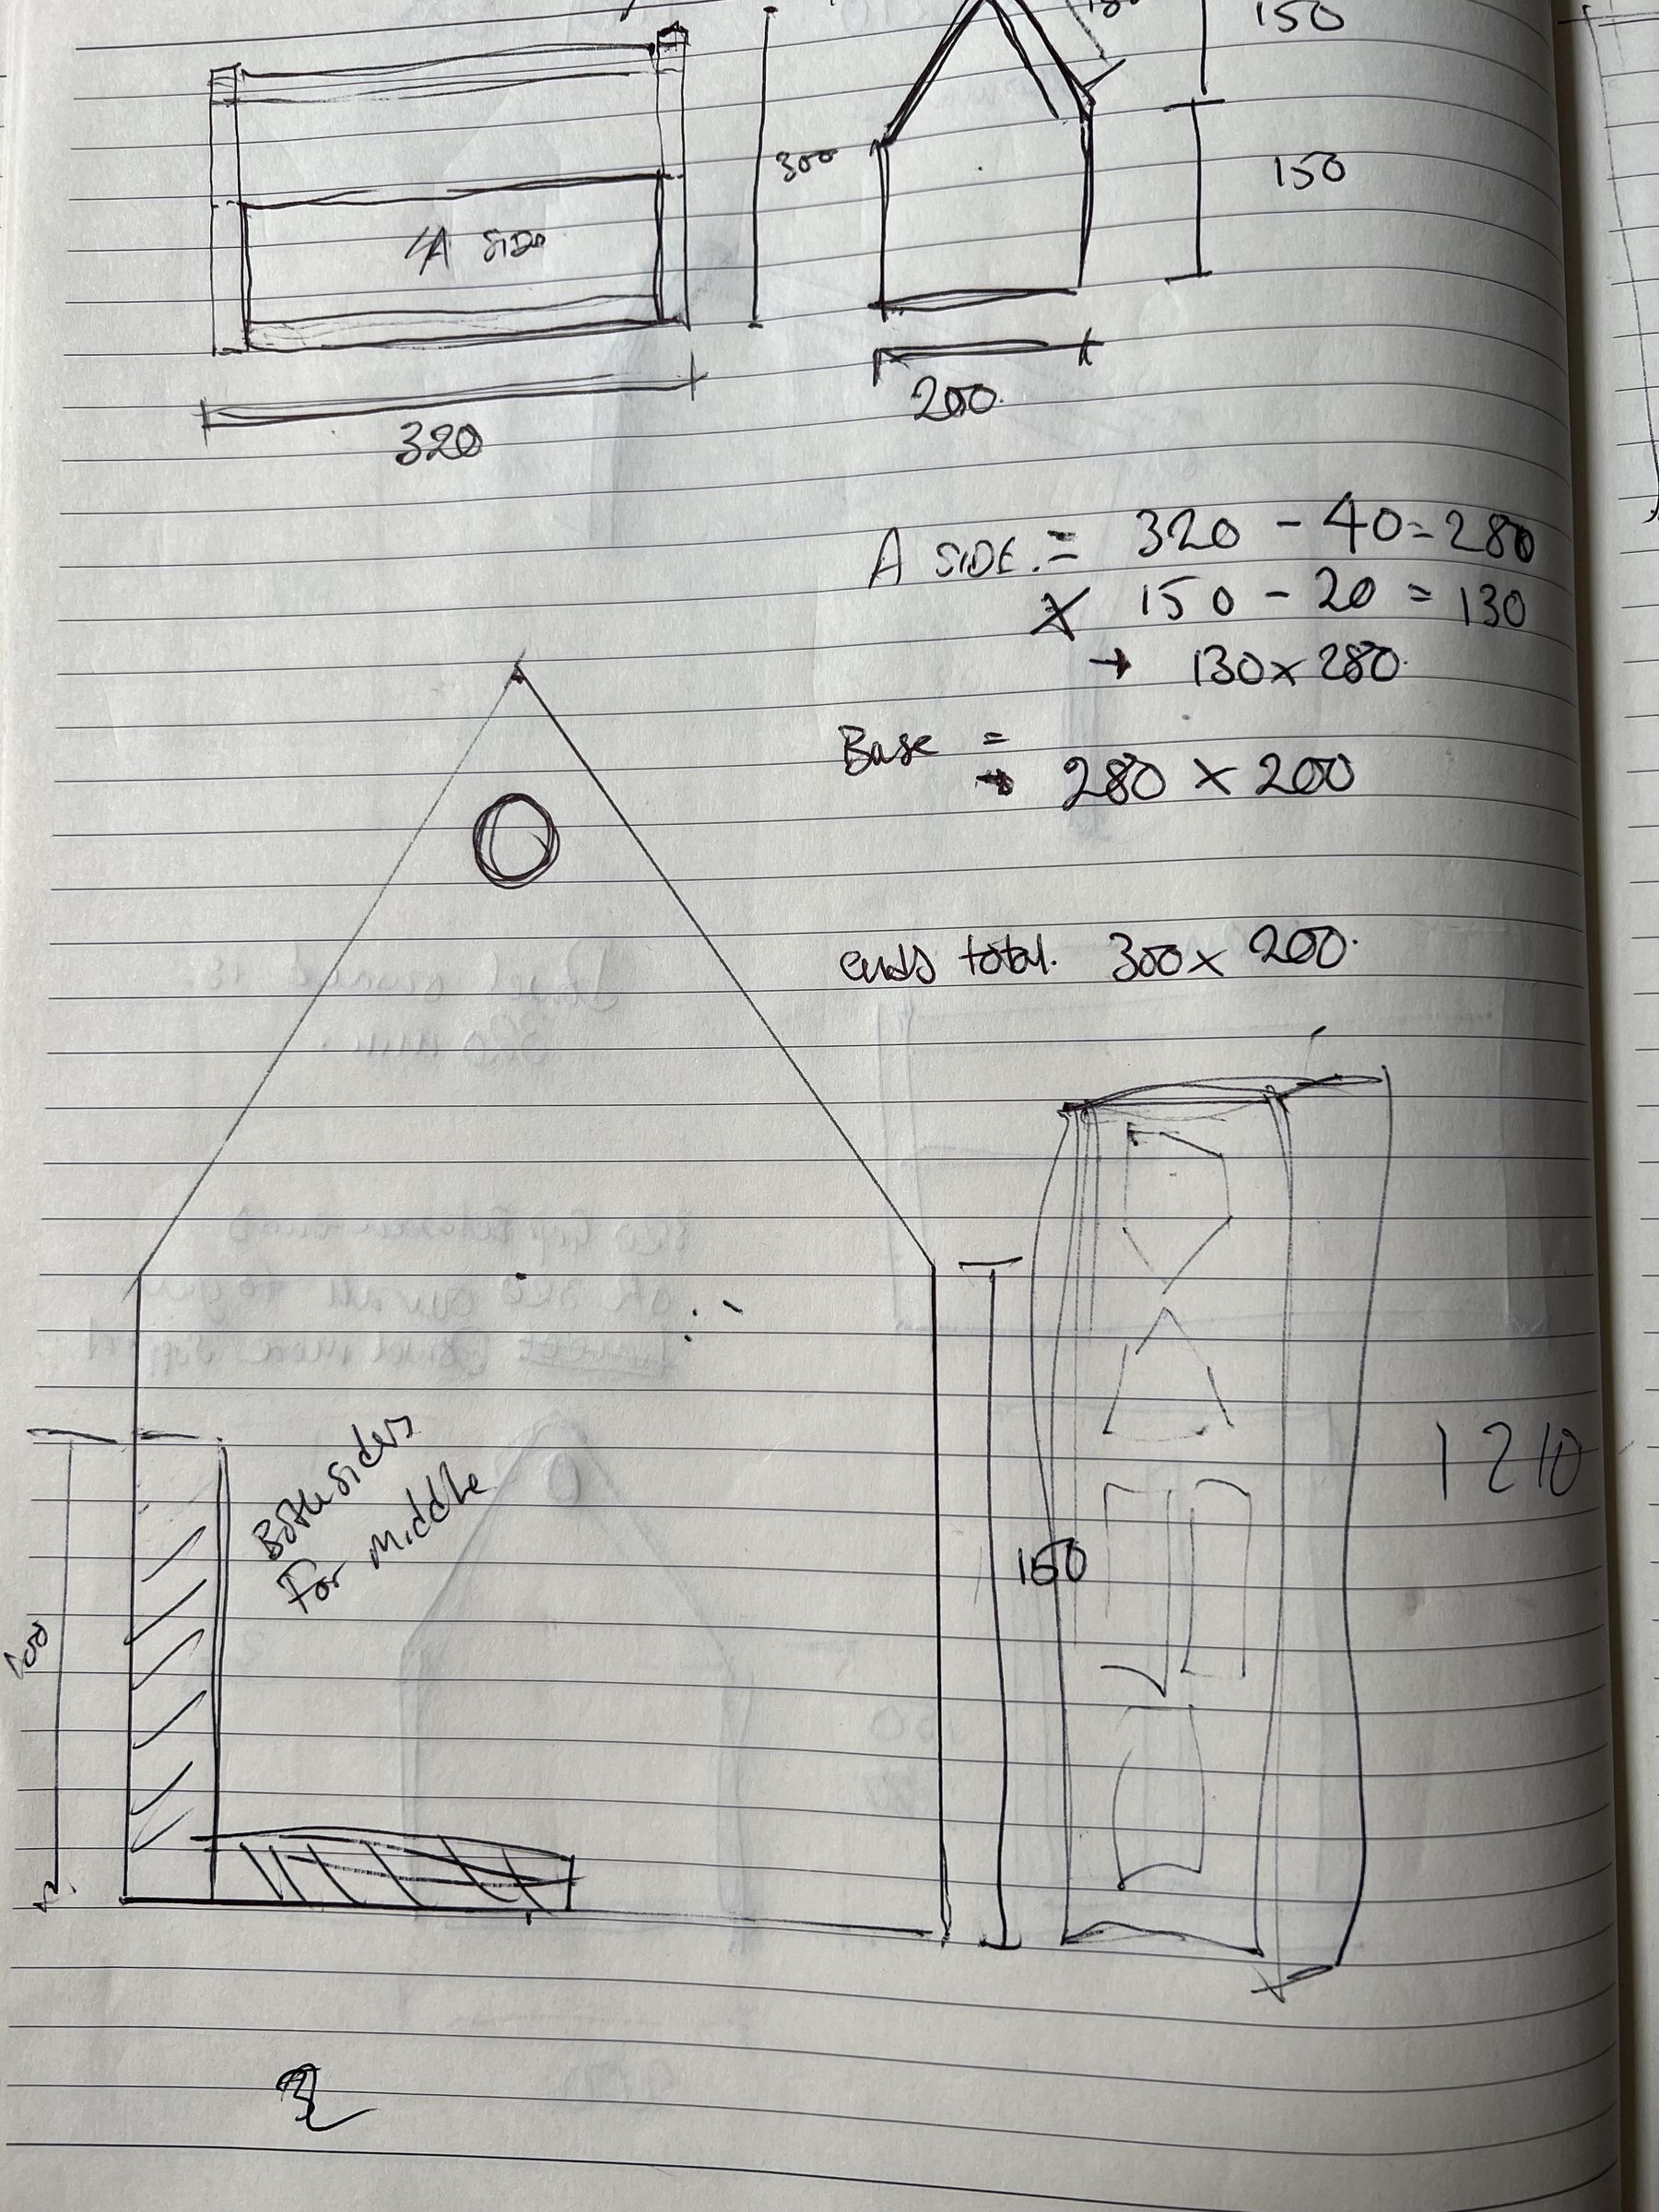 150
300
150
A SIDE
200
320
A SIDE. = 320 - 40 = 280
x 150 - 20 = 130
→ 130 x 280.
Base =
→ 280 x 200
ends total. 300 x 200.
1210
Both sides
For Middle
150
100